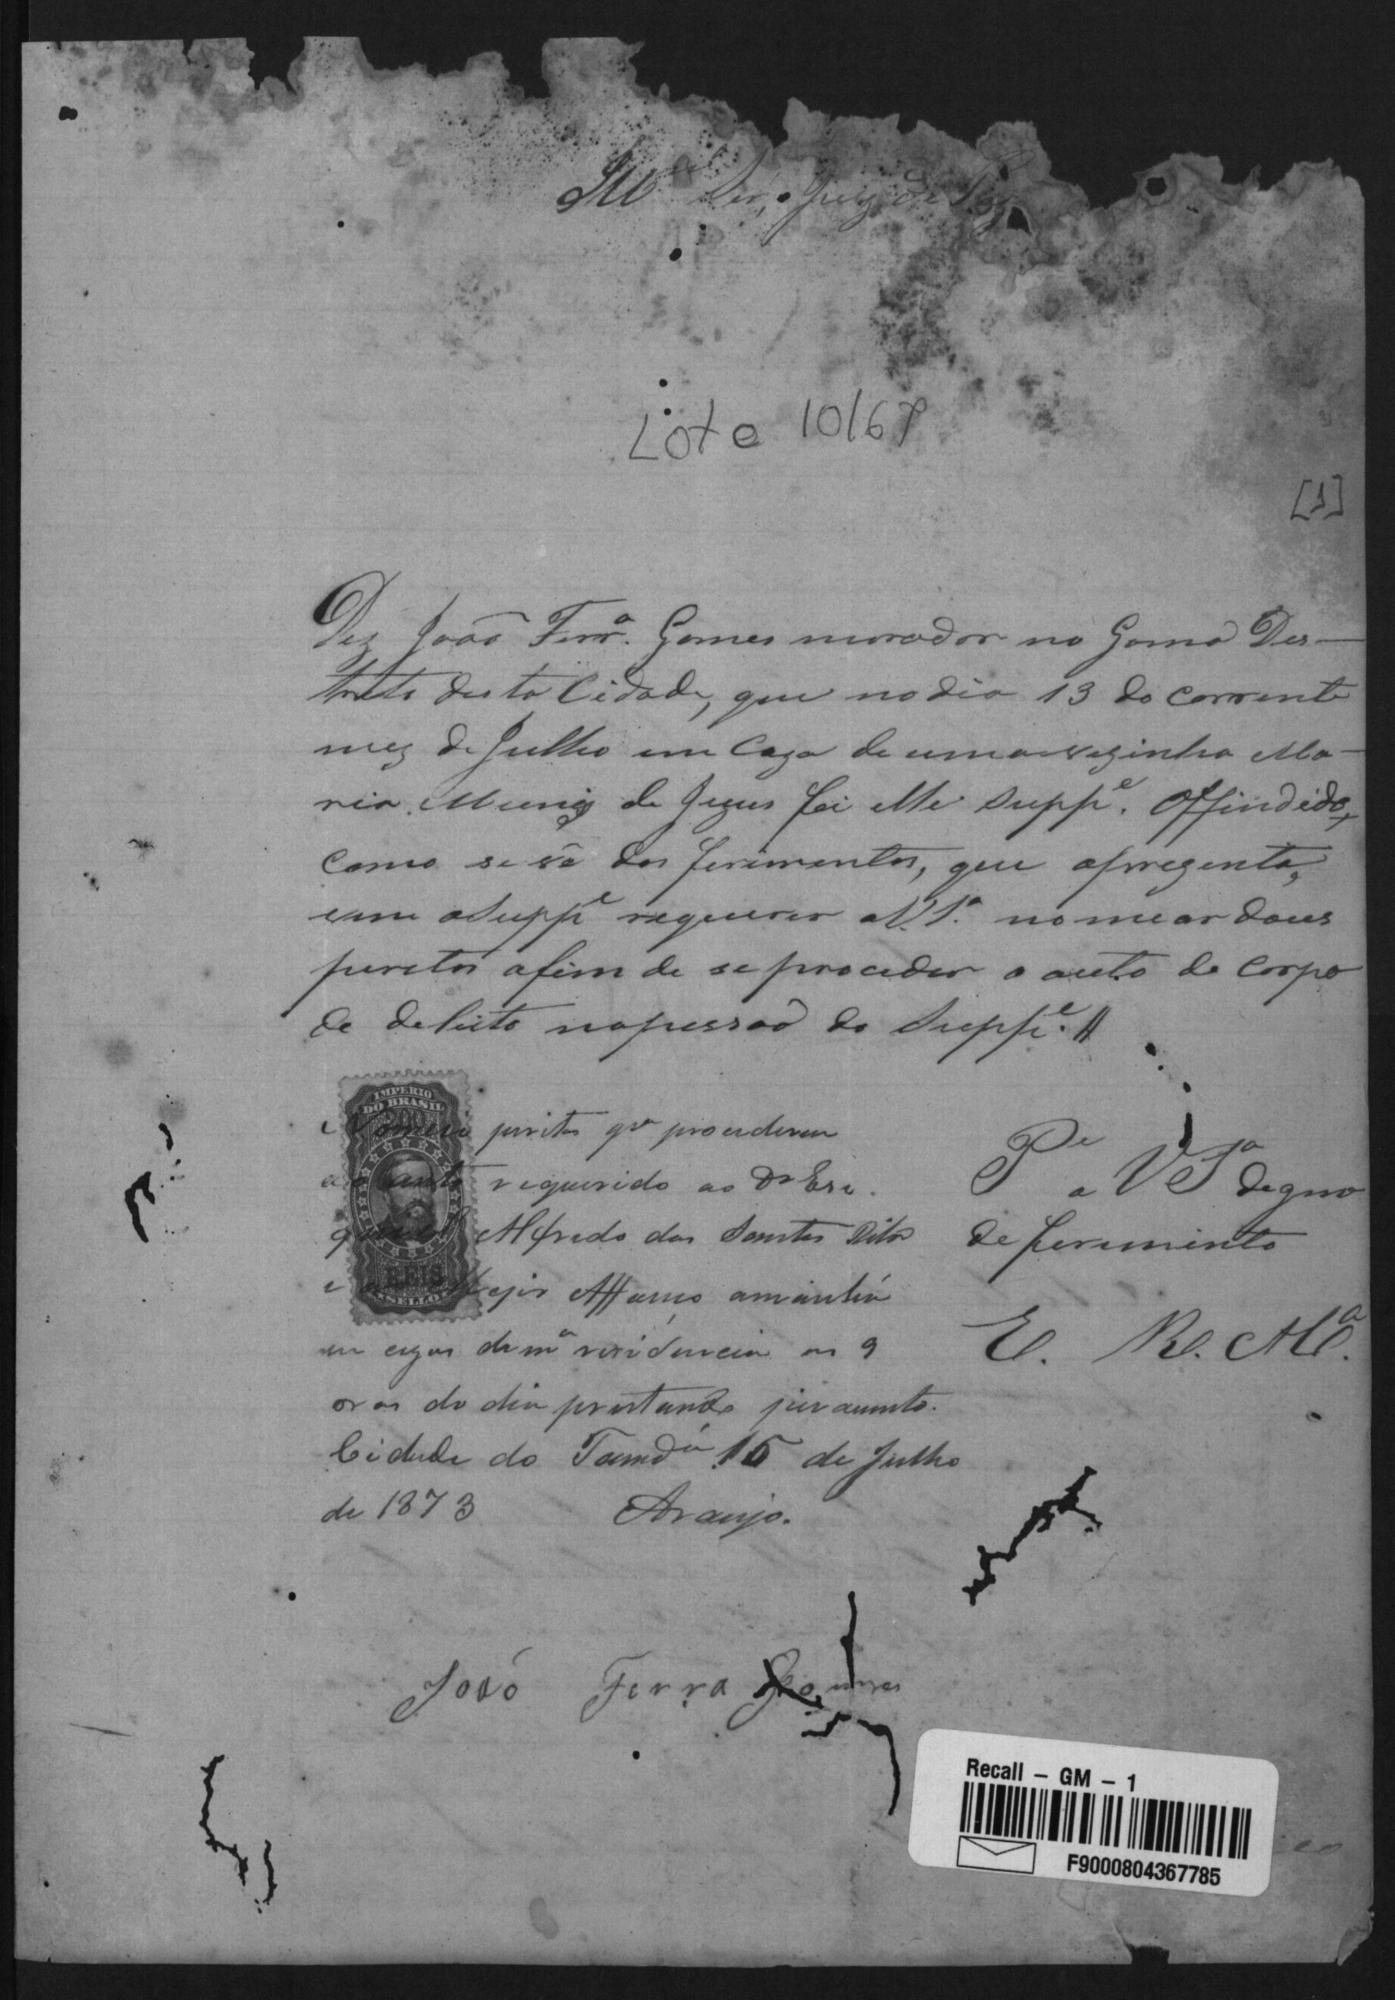 Illmº Snr. Juiz de Paz
Lote 10167
[1]
Diz João Ferrª. Gomes morador no Gama Des-
treto desta Cidade, que no dia 13 do corrente
mez de Julho em Caza de uma vezinha Ma-
ria Muniz de Jezus foi elle Suppe. Offindido,
como se vê dos ferimentos, que aprezenta,
vem o Suppe requerer a V.Sª. nomear dous
peretos afim de se proceder o auto de corpo
de delicto na pessoa do Suppe. //
IMPERIO
DO BRASIL
200
REIS
SELLO
Nomeio peritos qe procederem
ao auto requerido ao Dr
Alfredo dos Santos
amanhã
em caza de mª residencia as 9
oras do dia prestando juramento.
Cidade do Tamdua 15 de Julho
de 1873 Araujo.
Pe a VSª degno
deferemento
E. R. Mce.
João Ferra Gomes
Recall – GM – 1
F9000804367785